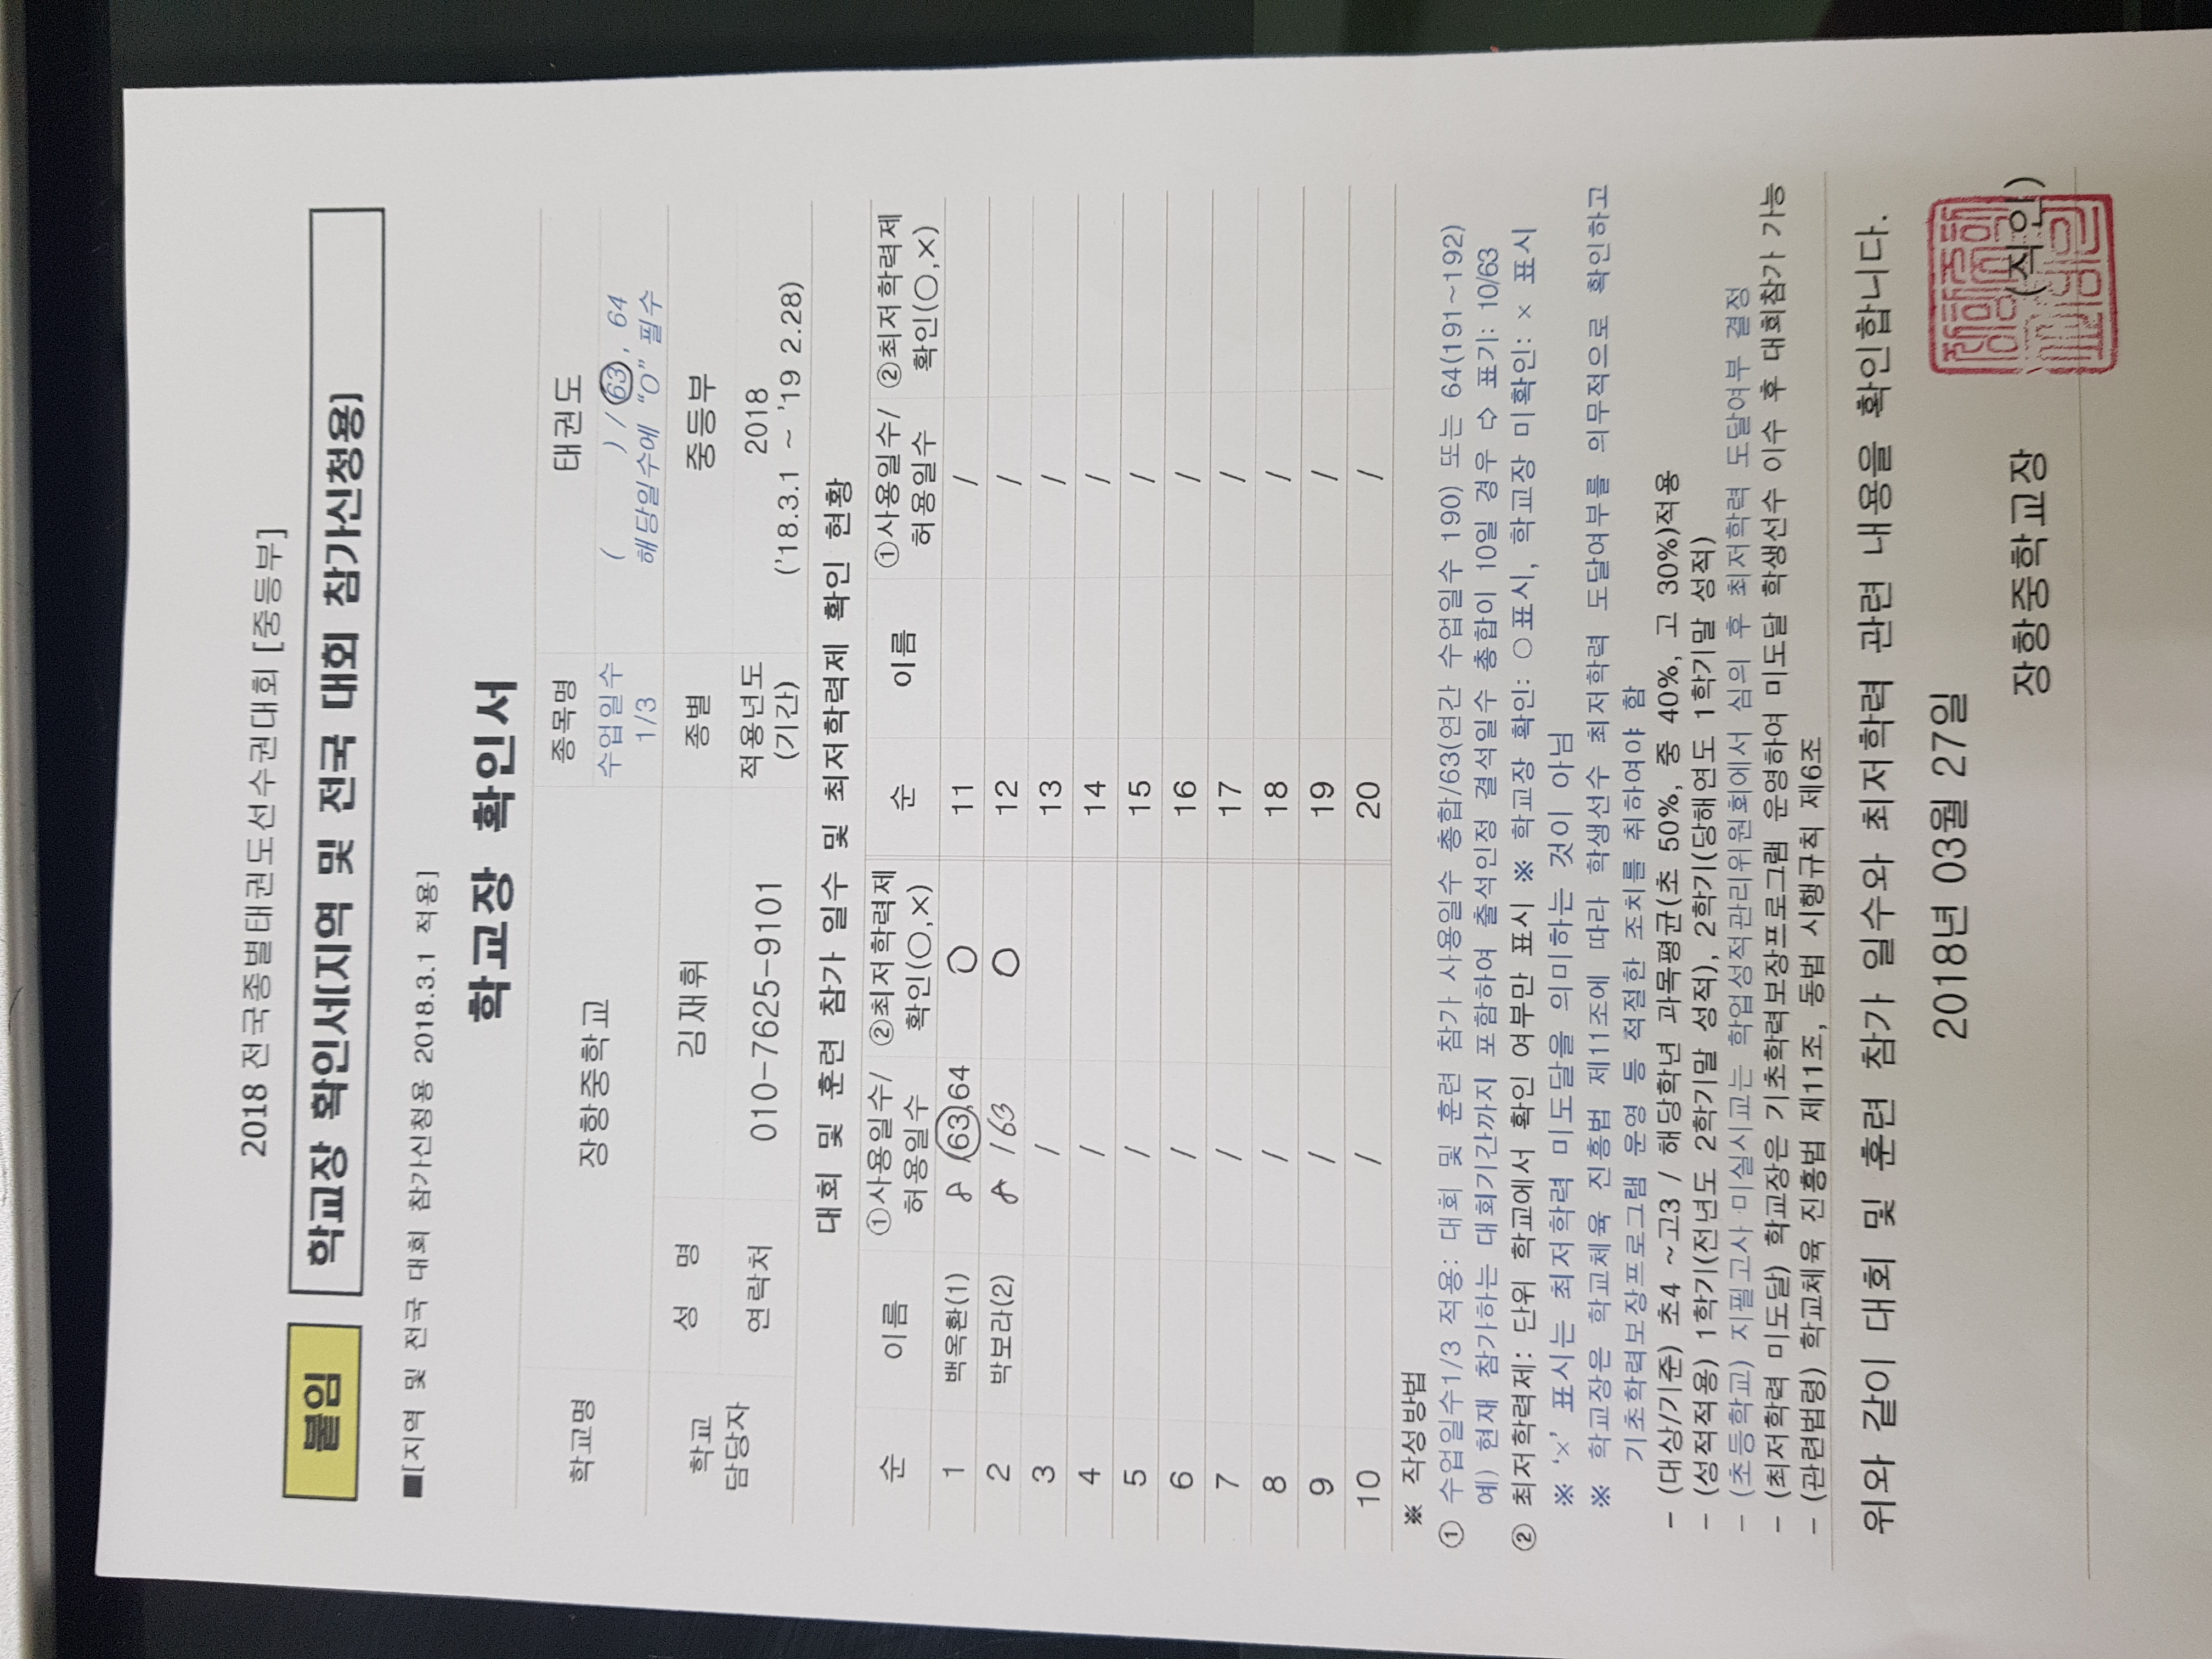 2018 전국종별태권도선수권대회 [중등부]
붙임
학교장 확인서[지역 및 전국 대회 참가신청용]
■[지역 및 전국 대회 참가신청용 2018.3.1 적용]
학교장 확인서
학교명 장항중학교 종목명 태권도
수업일수 1/3 ( ) / 63, 64
해당일수에 "O" 필수
학교 담당자 성 명 김재휘 종별 중등부
연락처 010-7625-9101 적용년도 (기간) 2018
('18.3.1 ~ '19 2.28)
대회 및 훈련 참가 일수 및 최저학력제 확인 현황
순 이름 ①사용일수/허용일수 ②최저학력제 확인(○,×) 순 이름 ①사용일수/허용일수 ②최저학력제 확인(○,×)
1 백옥환(1) 8 /63,64 ○ 11 /
2 박보라(2) 8 /63 ○ 12 /
3 / 13 /
4 / 14 /
5 / 15 /
6 / 16 /
7 / 17 /
8 / 18 /
9 / 19 /
10 / 20 /
※ 작성방법
① 수업일수1/3 적용: 대회 및 훈련 참가 사용일수 총합/63(연간 수업일수 190) 또는 64(191~192)
예) 현재 참가하는 대회기간까지 포함하여 출석인정 결석일수 총합이 10일 경우 ⇨ 표기: 10/63
② 최저학력제: 단위 학교에서 확인 여부만 표시 ※ 학교장 확인: ○표시, 학교장 미확인: × 표시
※ '×' 표시는 최저학력 미도달을 의미하는 것이 아님
※ 학교장은 학교체육 진흥법 제11조에 따라 학생선수 최저학력 도달여부를 의무적으로 확인하고
기초학력보장프로그램 운영 등 적절한 조치를 취하여야 함
- (대상/기준) 초4 ~고3 / 해당학년 과목평균(초 50%, 중 40%, 고 30%)적용
- (성적적용) 1학기(전년도 2학기말 성적), 2학기(당해연도 1학기말 성적)
- (초등학교) 지필고사 미실시교는 학업성적관리위원회에서 심의 후 최저학력 도달여부 결정
- (최저학력 미도달) 학교장은 기초학력보장프로그램 운영하여 미도달 학생선수 이수 후 대회참가 가능
- (관련법령) 학교체육 진흥법 제11조, 동법 시행규칙 제6조
위와 같이 대회 및 훈련 참가 일수와 최저학력 관련 내용을 확인합니다.
2018년 03월 27일
장항중학교장 (직인)